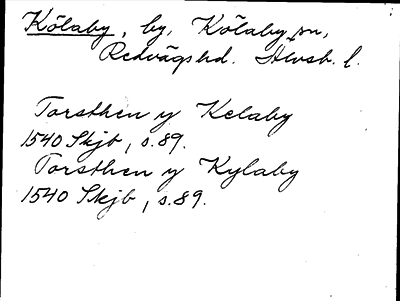 Kölaby, by, Kölaby sn,
Redvägs hd. Älvsb. l.
Torsthen y Kelaby
1540 Skjb, s.89.
Torsthen y Kylaby
1540 Skjb, s.89.